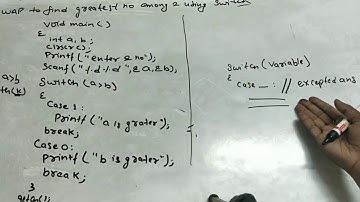 WAP to find greatest no among 2 using switch
void main()
{ int a, b;
clrscr();
Printf("enter 2 no");
Scanf("%d%d", &a, &b);
a>b
Switch (a>b)
{
Case 1:
Printf("a is grater");
break;
Case 0:
printf("b is grater");
break;
}
getch();
Switch (variable)
{
case _ : // excepted ans